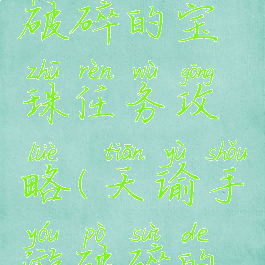 破碎的宝
zhū rèn wù gōng
珠任务攻
lüè tiān yù shǒu
略(天谕手
yóu pò suì de
游破碎的